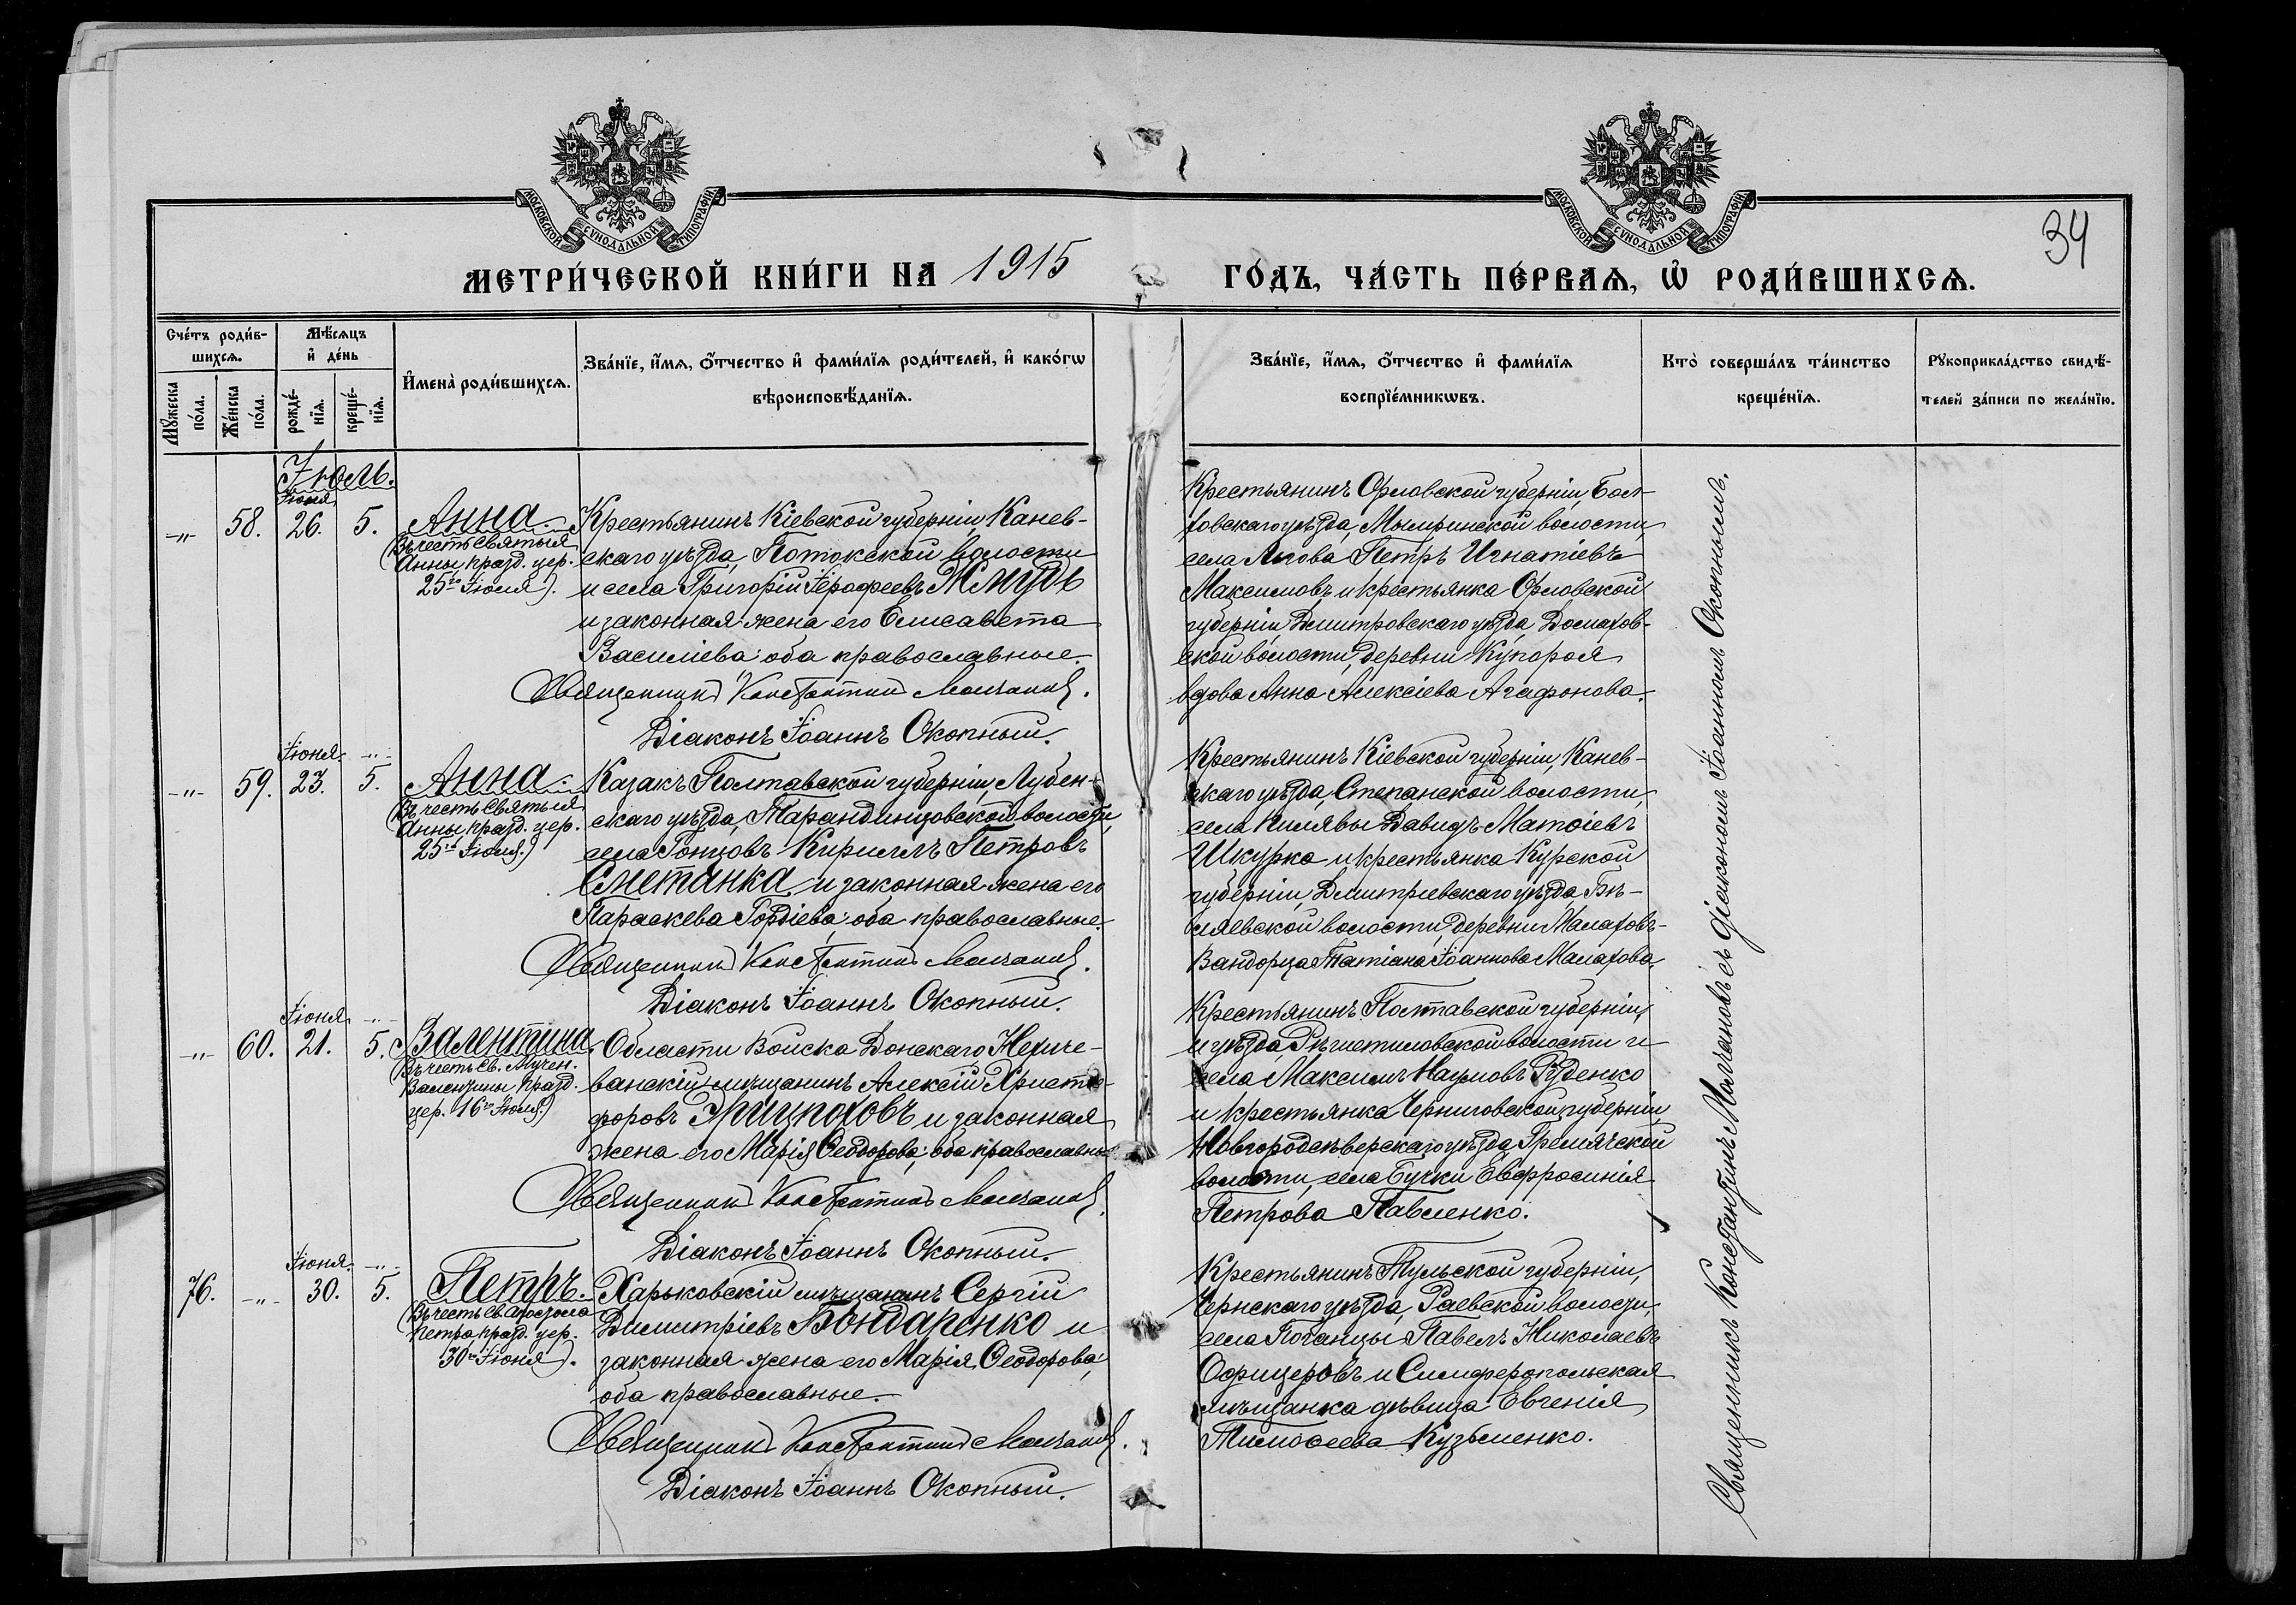 МОСКОВСКОЙ СѴНОДАЛЬНОЙ ТИПОГРАФІИ
МОСКОВСКОЙ СѴНОДАЛЬНОЙ ТИПОГРАФІИ
34
МЕТРИ́ЧЕСКОЙ КНИ́ГИ НА 1915 ГО́ДЪ, ЧА́СТЬ ПЕ́РВАѦ, Ѡ҆ РОДИ́ВШИХСѦ.
Сче́тъ роди́в-
шихсѧ.
Мꙋ́жеска по́ла.
Же́нска по́ла.
Мѣ́сѧцъ
и҆ де́нь
рожде́-нїѧ.
креще́-нїѧ.
И҆мена̀ роди́вшихсѧ.
Зва́нїе, и҆́мѧ, ѻ҆́тчество и҆ фами́лїѧ роди́телей, и҆ како́гѡ
вѣроисповѣ́данїѧ.
Зва́нїе, и҆́мѧ, ѻ҆́тчество и҆ фами́лїѧ
воспрїе́мникѡвъ.
Кто̀ соверша́лъ та́инство
креще́нїѧ.
Рꙋкоприкла́дство свидѣ́-
телей за́писи по жела́нїю.
Іюль.
Іюня
-„- 58. 26. 5. Анна.
(Въ честь Святыя
Анны празд. цер.
25го Іюля).
Крестьянинъ Кіевской губерніи Канев-
скаго уѣзда, Потокской волости
и села Григорій Іерофеевъ Жмудь
и законная жена его Елисавета
Василіева: оба православные.
Священникъ Константинъ Молчановъ.
Діаконъ Іоаннъ Окопный.
Крестьянинъ Орловской губерніи, Бол-
ховскаго уѣзда, Мымринской волости,
села Льгова Петръ Игнатіевъ
Максимовъ и крестьянка Орловской
губерніи, Дмитровскаго уѣзда, Домахов-
ской волости, деревни
вдова Анна Алексіева Агафонова.
Іюня -„-
-„- 59. 23. 5. Анна.
(Въ честь Святыя
Анны празд. цер.
25го Іюля.)
Казакъ Полтавской губерніи, Лубен-
скаго уѣзда, Тарандинцовской волости,
села Гонцовъ Кириллъ Петровъ
Сметанка и законная жена его
Параскева Гордіева; оба православные.
Священникъ Константинъ Молчановъ.
Діаконъ Іоаннъ Окопный.
Крестьянинъ Кіевской губерніи, Канев-
скаго уѣзда, Степанской волости,
села Килявы Давидъ Матѳіевъ
Шкурка и крестьянка Курской
губерніи, Дмитріевскаго уѣзда, Бѣ-
ляевской волости, деревни Малахов-
Татіана Іоаннова Малахова.
Іюня -„-
-„- 60. 21. 5. Валентина
(Въ честь Св. Мучен.
Валентины празд.
цер. 16го Іюля.)
Области Войска Донскаго, Нахиче-
ванскій мѣщанинъ Алексій Христо-
форовъ и законная
жена его Марія Ѳеодорова; оба православные
Священникъ Константинъ Молчановъ.
Діаконъ Іоаннъ Окопный.
Крестьянинъ Полтавской губерніи,
и уѣзда, Рѣшетиловской волости и
села Максимъ Наумовъ Руденко
и крестьянка Черниговской губерніи,
Новгородсѣверскаго уѣзда, Гремячской
волости, села Бучки Евфросинія
Петрова Павленко.
Іюня. -„-
76. -„- 30. 5. Петръ.
(Въ честь Св. Апостола
Петра празд. цер.
30го Іюня).
Харьковскій мѣщанинъ Сергій
Димитріевъ Бондаренко и
законная жена его Марія Ѳеодорова;
оба православные.
Священникъ Константинъ Молчановъ.
Діаконъ Іоаннъ Окопный.
Крестьянинъ Тульской губерніи,
Чернскаго уѣзда, Раевской волости,
села Павелъ Николаевъ
Офицеровъ и Симферопольская
мѣщанка дѣвица Евгенія
Тимоѳеева Кузьменко.
Священникъ Константинъ Молчановъ съ діакономъ Іоанномъ Окопнымъ.